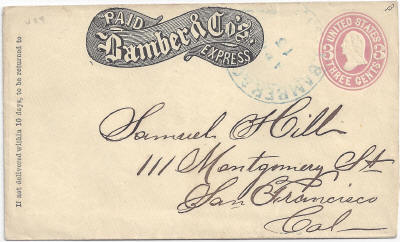 PAID
Bamber & Co's.
EXPRESS.
BAMBER &
UNITED STATES
THREE CENTS
If not delivered within 10 days, to be returned to
Samuel Hill
111 Montgomery St
San Francisco
Cal—